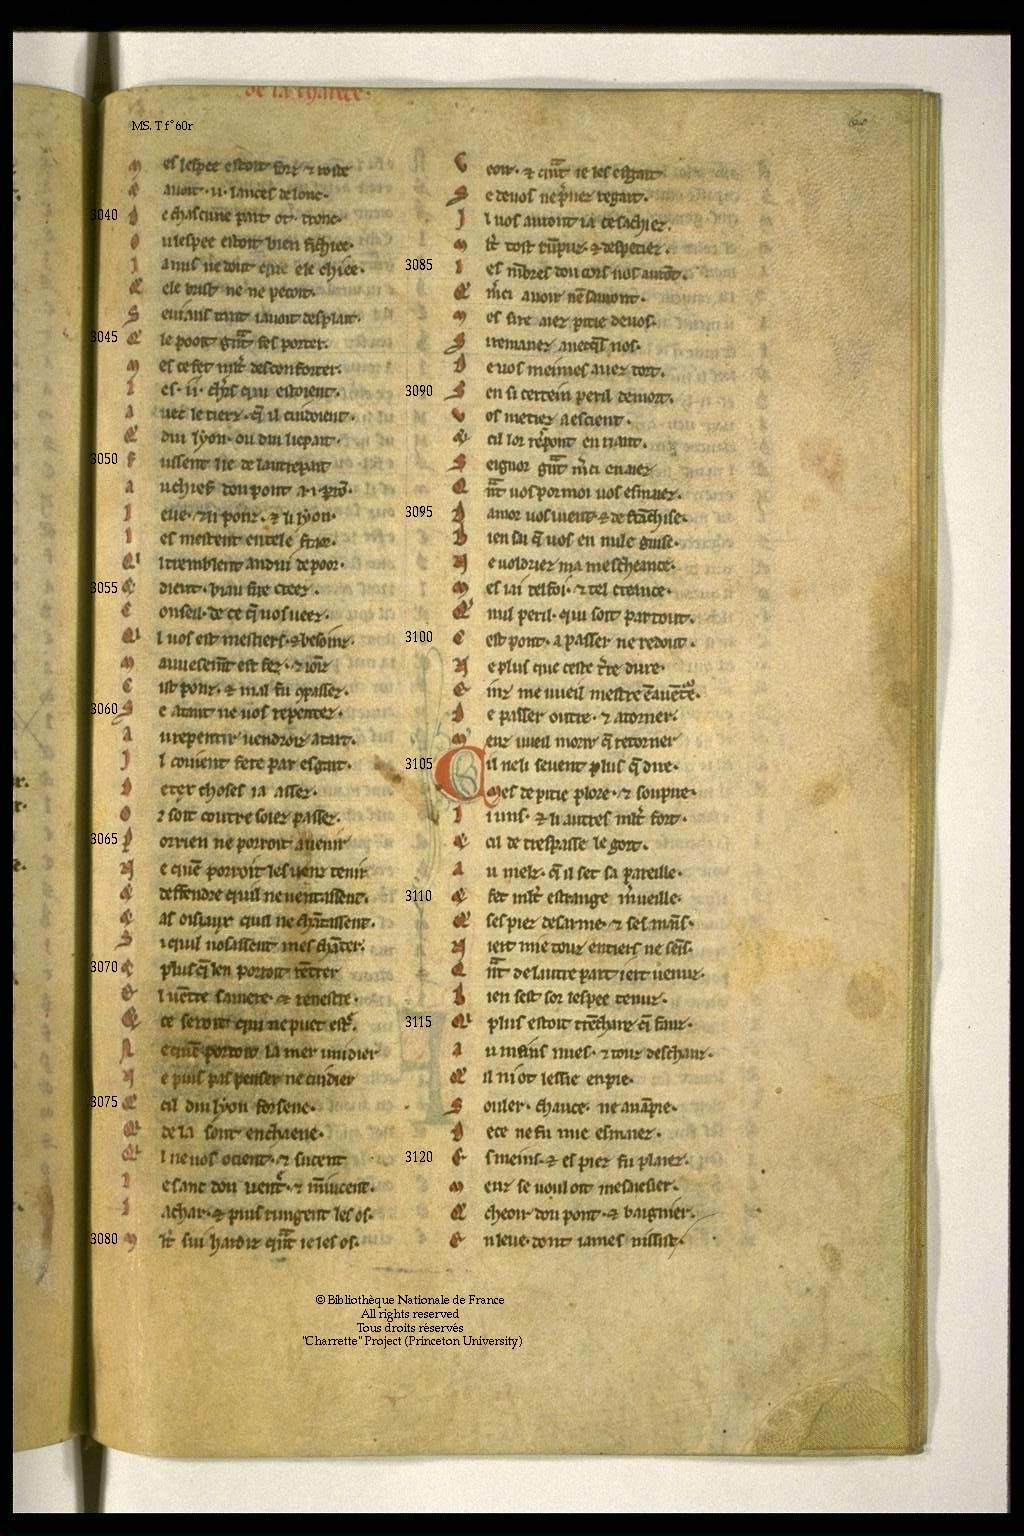 de la charete.
MS. T f°60r
60
M es lespee estoit forz ⁊ roide
⁊ auoit .ii. lances de lonc.
3040 D e chascune part ot .i. tronc.
O u lespee estoit bien fichiee.
J amis ne dout que ele chiee.
Q ele brist ne ne pecoit.
S eniauls tant i auoit desploit.
3045 Q le pooit g̃nt fes porter.
M es ce fet ml̃t desconforter.
L es .ii. chr̃s qui estoient.
A uec le tierz. q̃ il cuidoient.
Q dui lyon. ou dui liepart.
3050 F ussent lie de lautrepart
A u chief dou pont a .i. p̃ro.
L eue. ⁊ li ponz. ⁊ li lyon.
L es mettent en tele fraor.
Q il tremblent andui de poor.
3055 ⁊ dient. biau sire creez.
C onseil. de ce q̃ uos ueez.
Q il uos est mestiers. ⁊ besoinz.
M auuesem̃t est fez. ⁊ ioinz
C ist ponz. ⁊ mal fu 9passez.
3060 S e atant ne uos repentez.
A u repentir uendroiz atart.
J l couient fere par esgart.
D etex choses ia assez.
O r soit c'outre soiez passez.
3065 P or rien ne porroit auenir
N e que porroiz les uenz tenir
⁊ deffendre quil ne uentassent.
⁊ as oisiaux quil ne chãtassent.
S i quil nosassent mes chãter.
3070 ⁊ plus q̃ len porroit rẽtrer
E l uẽtre sa mere. ⁊ renestre.
Q ce seroit qui ne puet estr̃.
N e quẽ porroit la mer uuidier
N e puis pas penser ne cuidier
3075 Q cil dui lyon forsene.
Q de la sont enchaene.
Q il ne uos ocient. ⁊ sucent
L e sanc dou uentr̃. ⁊ mãiucent.
L a char. ⁊ puis rungent les os.
3080 M l̃t sui hardiz qm̃t ie les os.
V eoir. ⁊ qm̃t ie les esgart
S e de uos ne p̃nez regart.
J l uos auront ia tost sachiez.
M l̃t tost rũpuz. ⁊ despeciez.
3085 L es mẽbres dou cors uos aurõt.
Q m̃ci auoir nẽ sauront.
M es sire aiez pitie de uos.
S i remanez auecq̃s nos.
D e uos meimes auez tort.
3090 S en si certein peril de mort.
V os metiez a escient.
⁊ cil lor rẽpont en riant.
S eignor gm̃t m̃ci en aiez
Q m̃t uos por moi uos esmaiez.
3095 D amor uos uient ⁊ de frãchise.
B ien sai q̃ uos en nule guise.
N e uoldriez ma mescheance.
M es iai tel foi. ⁊ tel creance.
Q nul peril. qui soit par tout.
3100 C est pont. a passer ne redout.
N e plus que ceste t̃re dure.
E inz me vueil mestre ẽ auẽtẽ.
D e passer outre. ⁊ atorner.
M euz vueil morir q̃ retorner
3105 C il ne li seuent plus q̃ dire.
Mes de pitie plore. ⁊ soupire.
L i uns. ⁊ li autres ml̃t fort.
⁊ cil de trespasse le gort.
A u melz. q̃ il set sa pareille.
3110 ⁊ fet ml̃t estrange m̃ueille.
Q ses piez desarme. ⁊ ses mãis.
N iert mie touz entiers ne seis.
Q m̃t de lautre part iert uenuz.
B ien sest sor lespee tenuz.
3115 Q plus estoit trẽchanz q̃ fauz.
A u mains nues. ⁊ touz deschauz.
Q il niot lessie enpie.
S ouler. chauce. ne auãpie.
D ece ne fu mie esmaiez.
3120 E s meins. ⁊ es piez fu plaiez.
M euz se vouloit mesaesier.
Q cheoir dou pont. ⁊ baignier.
E n leue. dont iames nissist.
©Bibliothèque Nationale de France
All rights reserved
Tous droits réservés
"Charrette" Project (Princeton University)